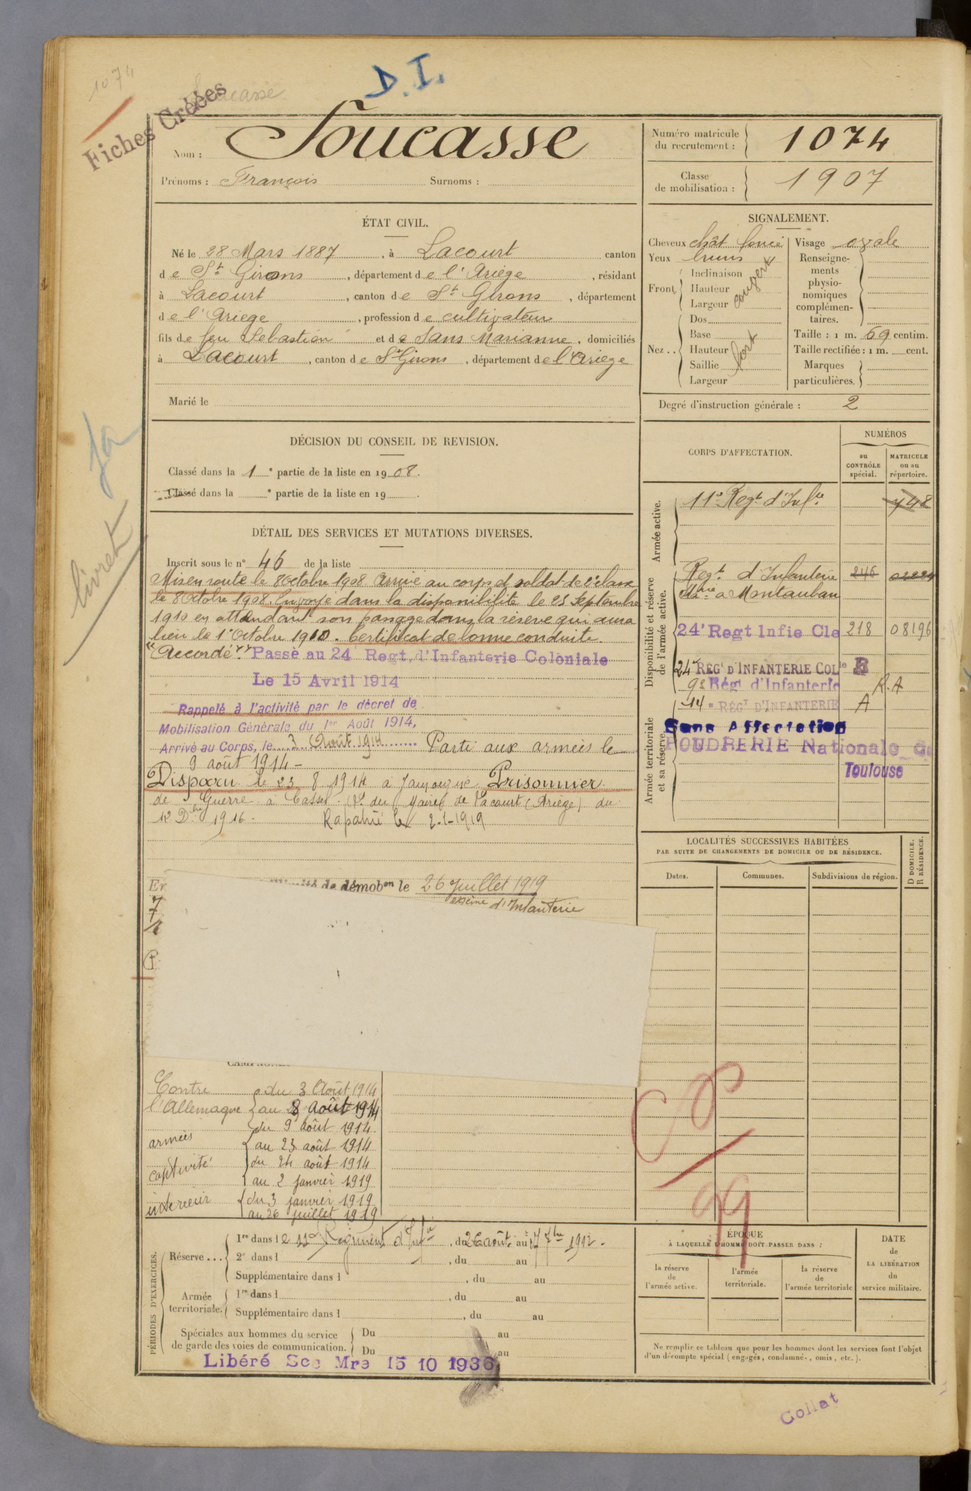 1074
Fiches Créées
D.I.
Nom : Foucasse
Prénoms : François Surnoms :
Numéro matricule du recrutement : 1074
Classe de mobilisation : 1907
ÉTAT CIVIL.
Né le 28 Mars 1887, à Lacourt canton
de St Girons, département de l'Ariège, résidant
à Lacourt, canton de St Girons, département
de l'Ariège, profession de cultivateur
fils de feu Sébastien et de Sans Marianne, domiciliés
à Lacourt, canton de St Girons, département de l'Ariège
Marié le
SIGNALEMENT.
Cheveux chât foncé
Yeux bruns
Front
Inclinaison
Hauteur
Largeur
Nez
Dos
Base
Hauteur
Saillie
Largeur
fort
Visage ovale
Renseignements physionomiques complémentaires.
Taille : 1 m. 69 centim.
Taille rectifiée : 1 m. cent.
Marques particulières.
Degré d'instruction générale : 2
DÉCISION DU CONSEIL DE REVISION.
Classé dans la 1e partie de la liste en 1908.
Classé dans la e partie de la liste en 19
DÉTAIL DES SERVICES ET MUTATIONS DIVERSES.
Inscrit sous le n° 46 de la liste
Mis en route le 8 octobre 1908. Arrivé au corps et soldat de 2e classe
le 8 Octobre 1908. Envoyé dans la disponibilité le 25 Septembre
1910 en attendant son passage dans la réserve qui aura
lieu le 1er Octobre 1910. Certificat de bonne conduite
"Accordé". Passé au 24 Regt. d'Infanterie Coloniale
Le 15 Avril 1914
Rappelé à l'activité par le décret de
Mobilisation Générale du 1er Août 1914.
Arrivé au Corps, le 3 Août 1914 Parti aux armées le
9 août 1914 -
Disparu le 23 8 1914 à Jamoigne Prisonnier
de Guerre à Cassel du Maire de Lacourt (Ariège) du
12 Dbre 1916. Rapatrié le 2-1-1919
de démobon le 26 Juillet 1919
d'Infanterie
livret
CORPS D'AFFECTATION.
NUMÉROS
au CONTRÔLE spécial.
MATRICULE ou au répertoire.
Armée active.
11e Regt d'Infie 748
Disponibilité et réserve de l'armée active.
Regt d'Infanterie 246
de Montauban
24e Regt Infie Cle 218 08196
24e REGt D'INFANTERIE COLle B
9e Régt d'Infanterie R.A
14e REGt D'INFANTERIE A
Armée territoriale et sa réserve.
Sans Affectation
POUDRERIE Nationale
Toulouse
LOCALITÉS SUCCESSIVES HABITÉES
PAR SUITE DE CHANGEMENTS DE DOMICILE OU DE RÉSIDENCE.
Dates.
Communes.
Subdivisions de région.
D DOMICILE. R RÉSIDENCE.
Contre l'Allemagne du 3 Août 1914
au 8 août 1914
armées du 9 août 1914
au 23 août 1914
captivité du 24 août 1914
au 2 janvier 1919
intérieur du 3 janvier 1919
au 26 juillet 1919
99
PÉRIODES D'EXERCICES.
Réserve...
1re dans le 11e Régiment d'Infie, du 26 août au 17 7bre 1912.
2e dans l , du au
Supplémentaire dans l , du au
Armée territoriale.
1re dans l , du au
Supplémentaire dans l , du au
Spéciales aux hommes du service de garde des voies de communication.
Du au
Du au
Libéré Sce Mre 15 10 1936
ÉPOQUE
À LAQUELLE L'HOMME DOIT PASSER DANS :
la réserve de l'armée active.
l'armée territoriale.
la réserve de l'armée territoriale
DATE de LA LIBÉRATION du service militaire.
Ne remplir ce tableau que pour les hommes dont les services font l'objet
d'un décompte spécial (engagés, condamnés, omis, etc.).
Collat